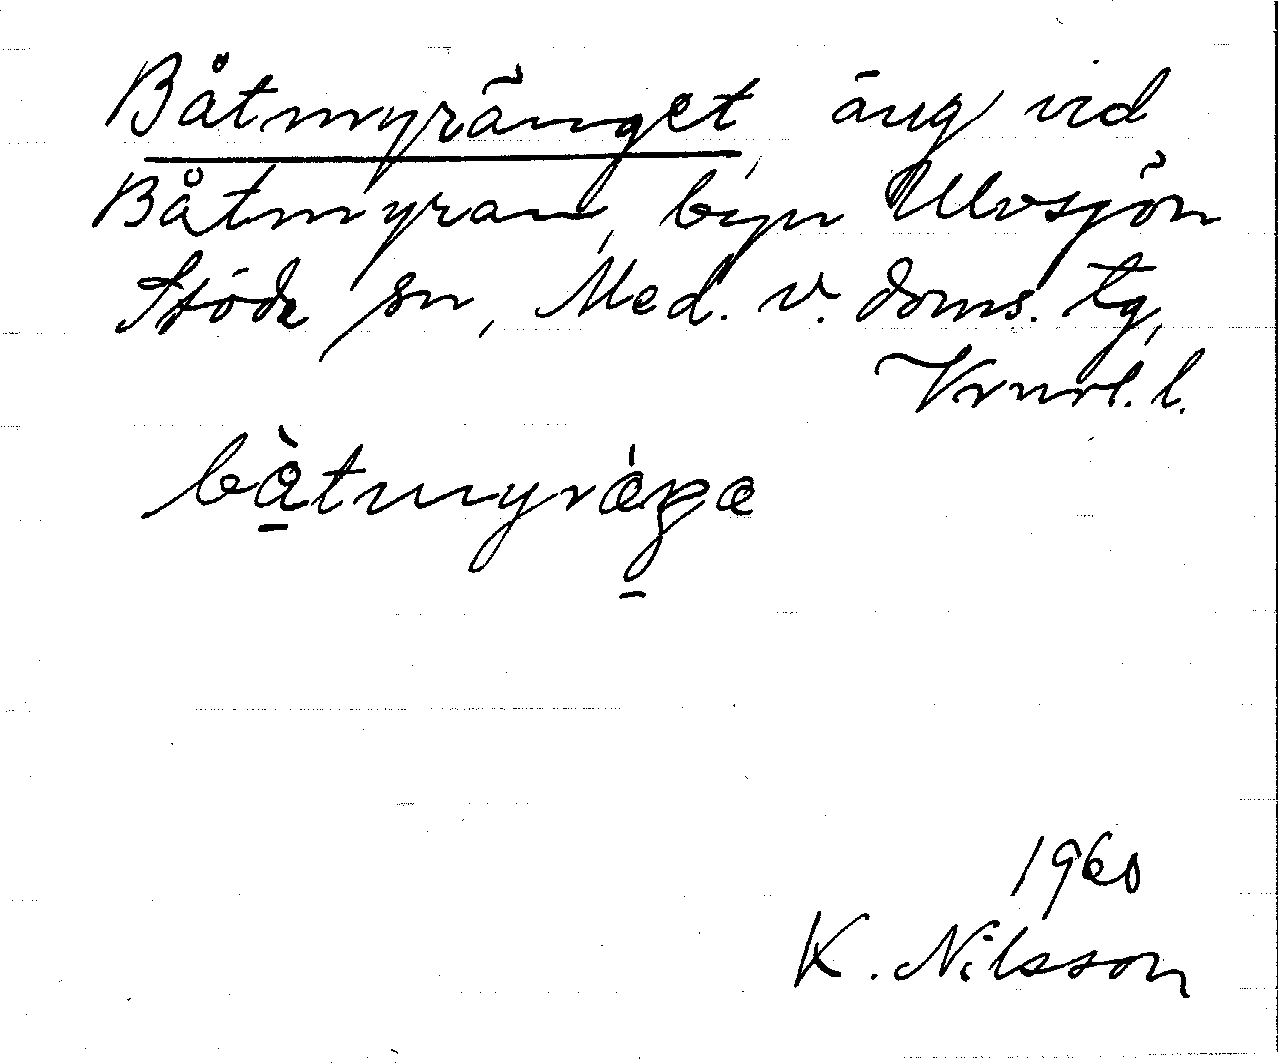 Båtmyränget, äng vid
Båtmyran, byn Ulvsjön
Stöde sn, Med. v. doms. tg,
Vrnrl. l.
1960
K. Nilsson